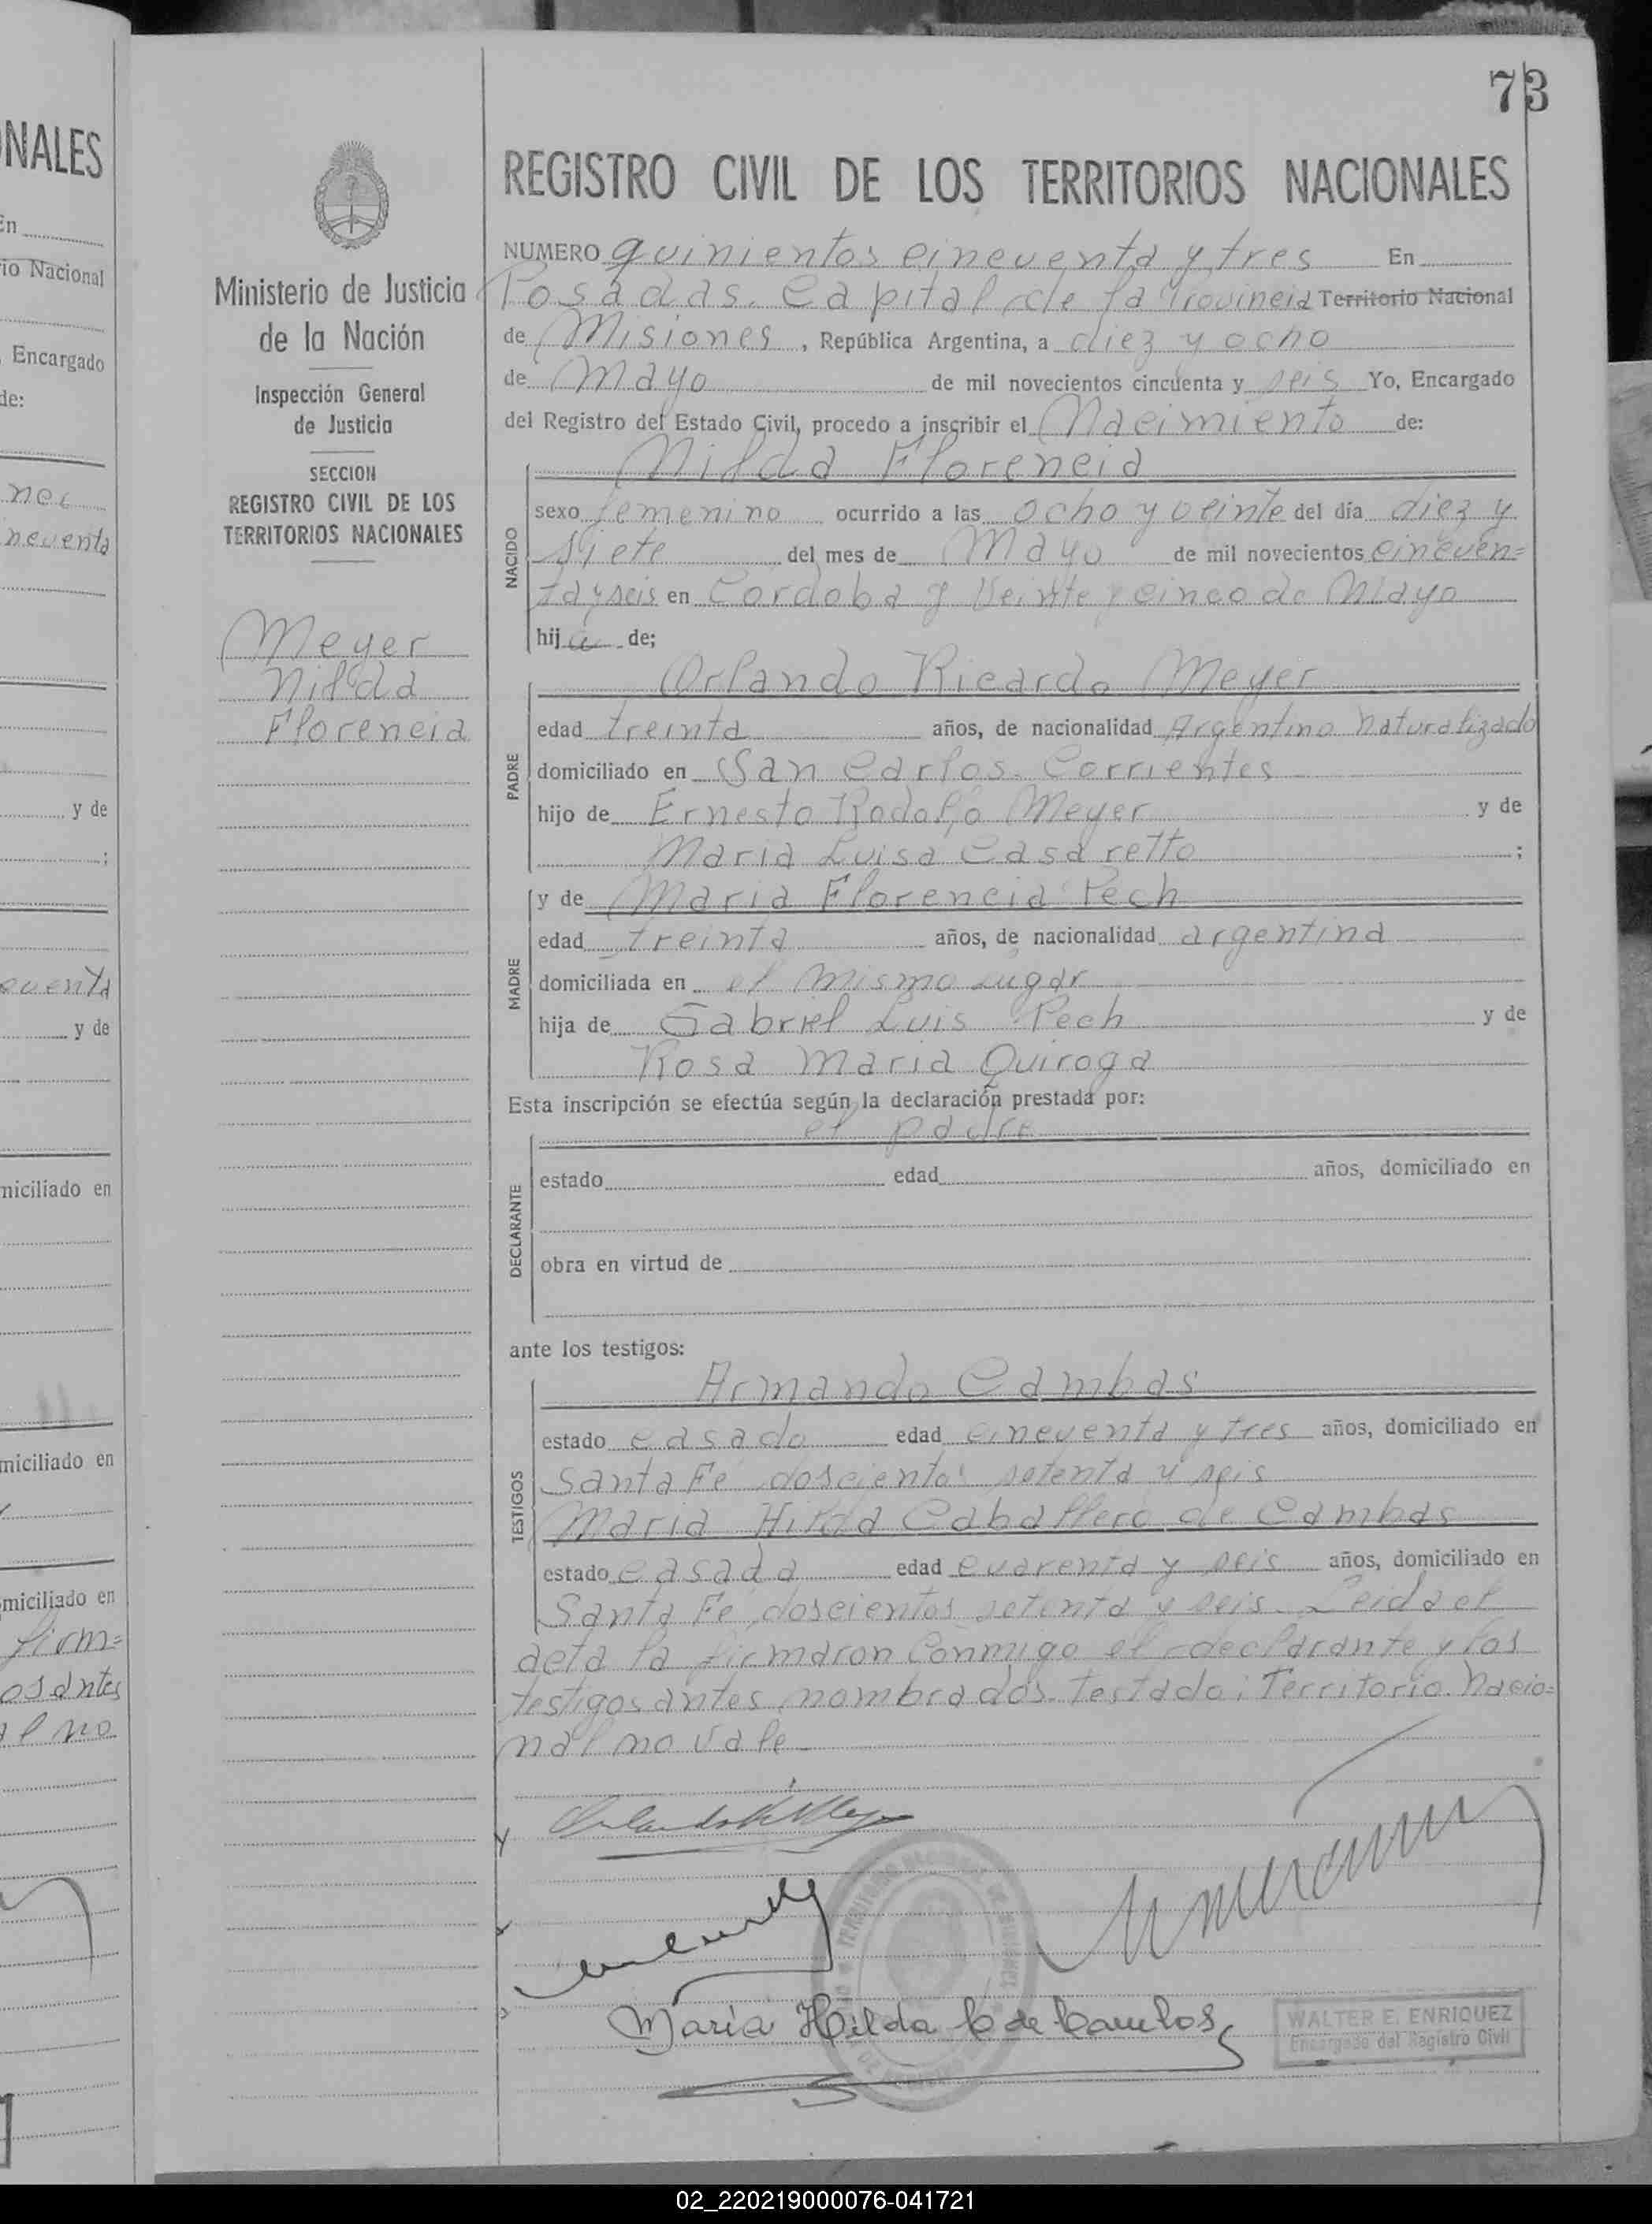 NALES
En
io Nacional
Encargado
de:
nec
ncuenta
y de
;
cuenta
y de
miciliado en
miciliado en
miciliado en
firm=
os antes
al no
73
Ministerio de Justicia
de la Nación
Inspección General
de Justicia
SECCION
REGISTRO CIVIL DE LOS
TERRITORIOS NACIONALES
Meyer
Nilda
Florencia
REGISTRO CIVIL DE LOS TERRITORIOS NACIONALES
NUMERO quinientos cincuenta y tres En
Posadas. Capital de la Provincia Territorio Nacional
de Misiones, República Argentina, a diez y ocho
de Mayo de mil novecientos cincuenta y seis Yo, Encargado
del Registro del Estado Civil, procedo a inscribir el Nacimiento de:
Nilda Florencia
NACIDO
sexo femenino ocurrido a las ocho y veinte del día diez y
siete del mes de Mayo de mil novecientos cincuen=
ta y seis en Córdoba y Veinte y cinco de Mayo
hija de;
Orlando Ricardo Meyer
PADRE
edad treinta años, de nacionalidad Argentino naturalizado
domiciliado en San Carlos. Corrientes
hijo de Ernesto Rodolfo Meyer y de
Maria Luisa Casaretto ;
y de Maria Florencia Pech
MADRE
edad treinta años, de nacionalidad argentina
domiciliada en el mismo lugar
hija de Gabriel Luis Pech y de
Rosa Maria Quiroga
Esta inscripción se efectúa según la declaración prestada por:
el padre
DECLARANTE
estado edad años, domiciliado en
obra en virtud de
ante los testigos:
Armando Cambas
TESTIGOS
estado casado edad cincuenta y tres años, domiciliado en
Santa Fe doscientos setenta y seis
Maria Hilda Caballero de Cambas
estado casada edad cuarenta y seis años, domiciliado en
Santa Fe doscientos setenta y seis. Leida el
acta la firmaron conmigo el declarante y los
testigos antes nombrados. Testado: Territorio. Nacio=
nal no vale
Orlando R Meyer
María Hilda C de Cambas
WALTER E. ENRIQUEZ
Encargado del Registro Civil
02_220219000076-041721